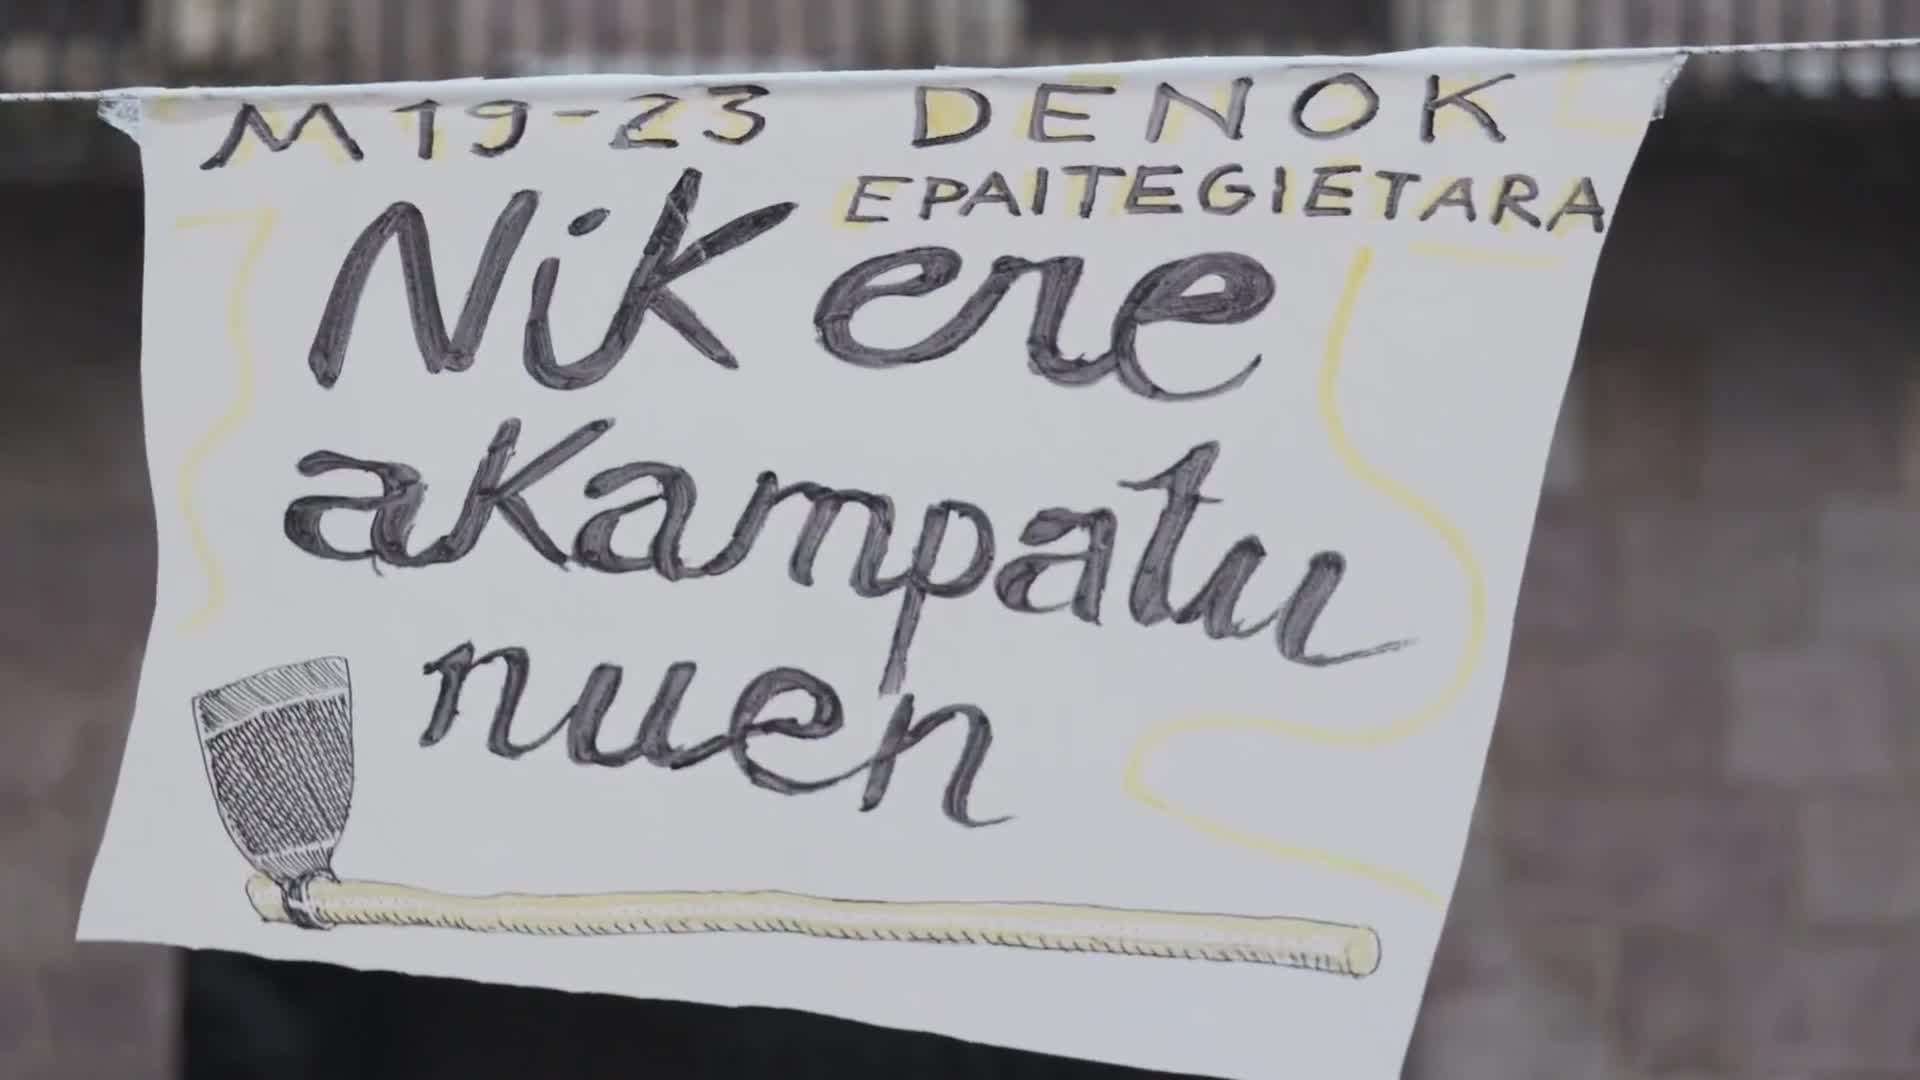 M19-23 DENOK
EPAITEGIETARA
Nik ere
akampatu
nuen